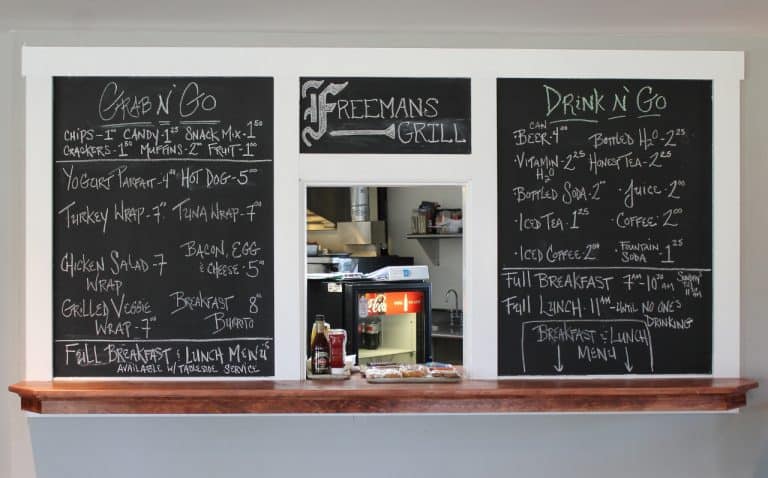 GRAB N' GO
CHIPS - 1.00 CANDY - 1.25 SNACK MIX - 1.50
CRACKERS - 1.50 MUFFINS - 2.00 FRUIT - 1.00
YOGURT PARFAIT - 4.00 HOT DOG - 5.00
TURKEY WRAP - 7.00 TUNA WRAP - 7.00
BACON, EGG
& CHEESE - 5.00
CHICKEN SALAD - 7
WRAP
GRILLED VEGGIE
WRAP - 7.00
BREAKFAST 8.00
BURRITO
FULL BREAKFAST & LUNCH MENU'S
AVAILABLE W/ TABLESIDE SERVICE
FREEMANS
GRILL
DRINK N' GO
CAN
BEER - 4.00 BOTTLED H2O - 2.25
VITAMIN - 2.25 HONEST TEA - 2.25
H2O
BOTTLED SODA - 2.00 · JUICE - 2.00
· ICED TEA - 1.25 · COFFEE - 2.00
· ICED COFFEE - 2.00 · FOUNTAIN
SODA - 1.25
FULL BREAKFAST 7AM - 10:30AM SUNDAY
TIL
11:30AM
FULL LUNCH - 11AM - UNTIL NO ONE'S
DRINKING
BREAKFAST & LUNCH
MENU